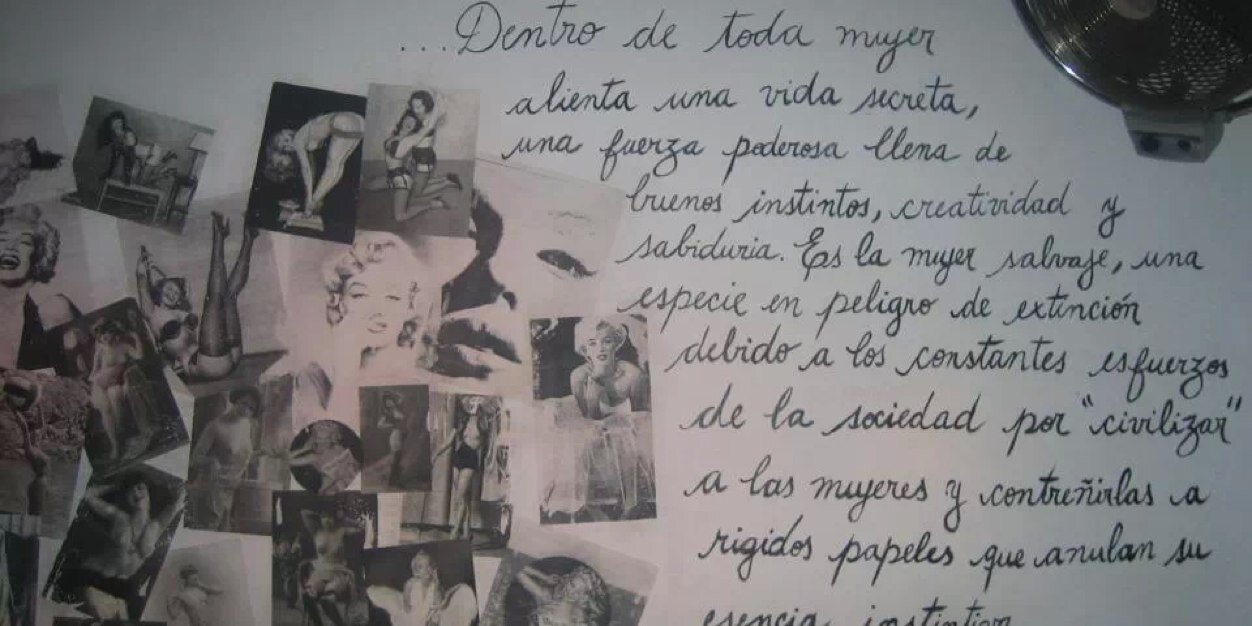 ...Dentro de toda mujer
alienta una vida secreta,
una fuerza poderosa llena de
buenos instintos, creatividad y
sabiduria. Es la mujer salvaje, una
especie en peligro de extinción
debido a los constantes esfuerzos
de la sociedad por "civilizar"
a las mujeres y contreñirlas a
rigidos papeles que anulan su
esencia instintiva